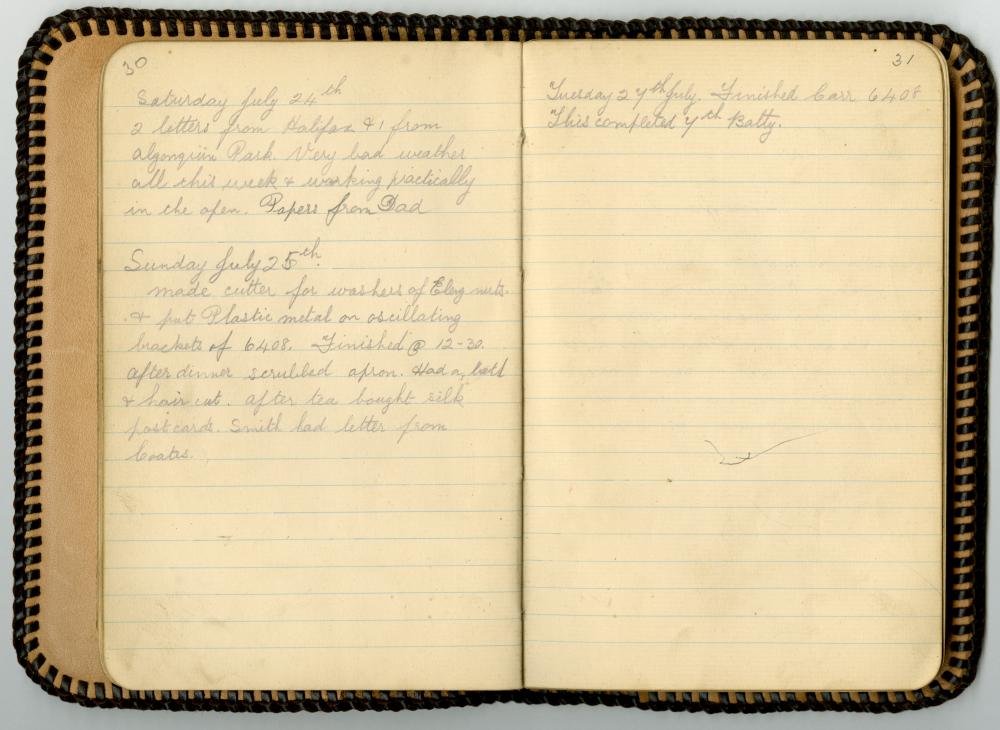 30
Saturday July 24th
2 letters from Halifax & 1 from
Algonquin Park. Very bad weather
all this week & working practically
in the open. Papers from Dad
Sunday July 25th
made cutter for washers of Elevg nuts.
& put Plastic metal on oscillating
brackets of 6408. Finished @ 12-30.
After dinner scrubbed apron. Had a bath
& hair cut. After tea bought silk
postcards. Smith had letter from
Coates.
31
Tuesday 27th July. Finished Carr 6408
This completed 7th Batty.